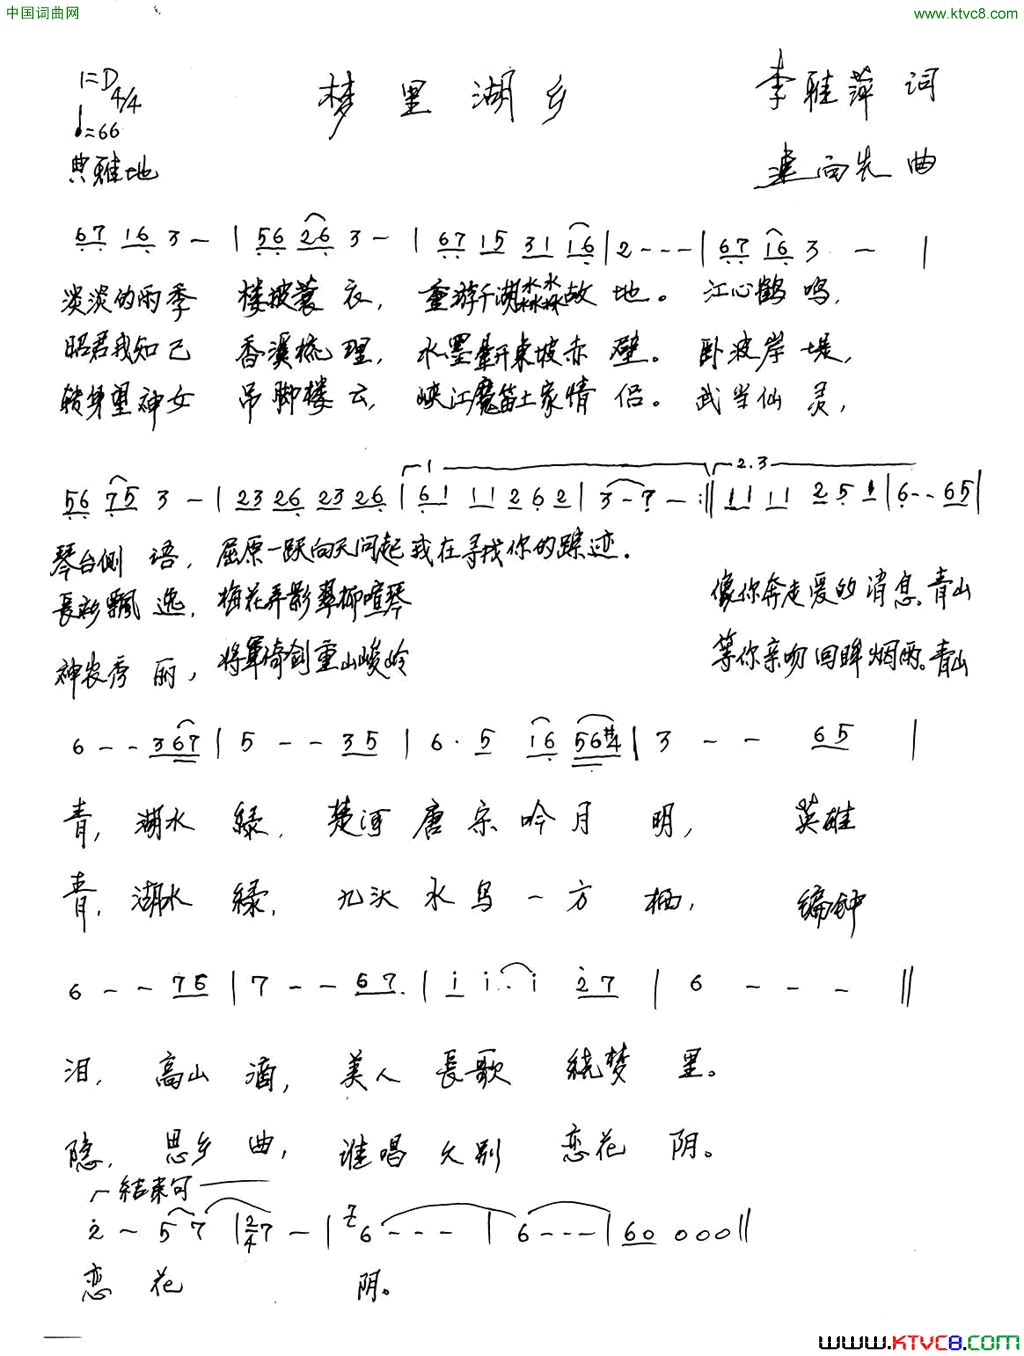 中国词曲网
www.ktvc8.com
1=D 4/4
♩=66
典雅地
梦里湖乡
李雅萍 词
连向先 曲
67 16 3 - | 56 26 3 - | 67 15 31 16 | 2 - - - | 67 16 3 - |
淡淡的雨季 楼披蓑衣, 重游千湖 故地。 江心鹤鸣,
昭君我知己 香溪梳理, 水墨晕开东坡赤壁。 卧波岸堤,
转身望神女 吊脚楼云, 峡江魔笛土家情侣。 武当仙灵,
1 2.3
56 75 3 - | 23 26 23 26 | 61 11 2 6 2 | 3 - 7 - :|| 11 11 2 5 1 | 6 - - 65 |
琴台侧语, 屈原一跃向天问起我在寻找你的踪迹。
長衫飘逸, 梅花弄影翠柳喧琴 像你奔走爱的消息。青山
神农秀丽, 将軍倚剑重山峻岭 等你亲吻回眸烟雨。青山
6 - - 367 | 5 - - 35 | 6 · 5 16 56#4 | 3 - - 65 |
青, 湖水 绿, 楚河唐宗吟月明, 英雄
青, 湖水 绿, 九头水鸟一方栖, 编钟
6 - - 76 | 7 - - 67 | i i · i 27 | 6 - - - ||
泪, 高山 酒, 美人長歌绕梦里。
隐, 思乡 曲, 谁唱久别恋花阴。
结束句
2 - 5 7 | 2/4 7 - | 7 6 - - - | 6 - - - | 60 000 ||
恋花 阴。
www.KTVC8.com